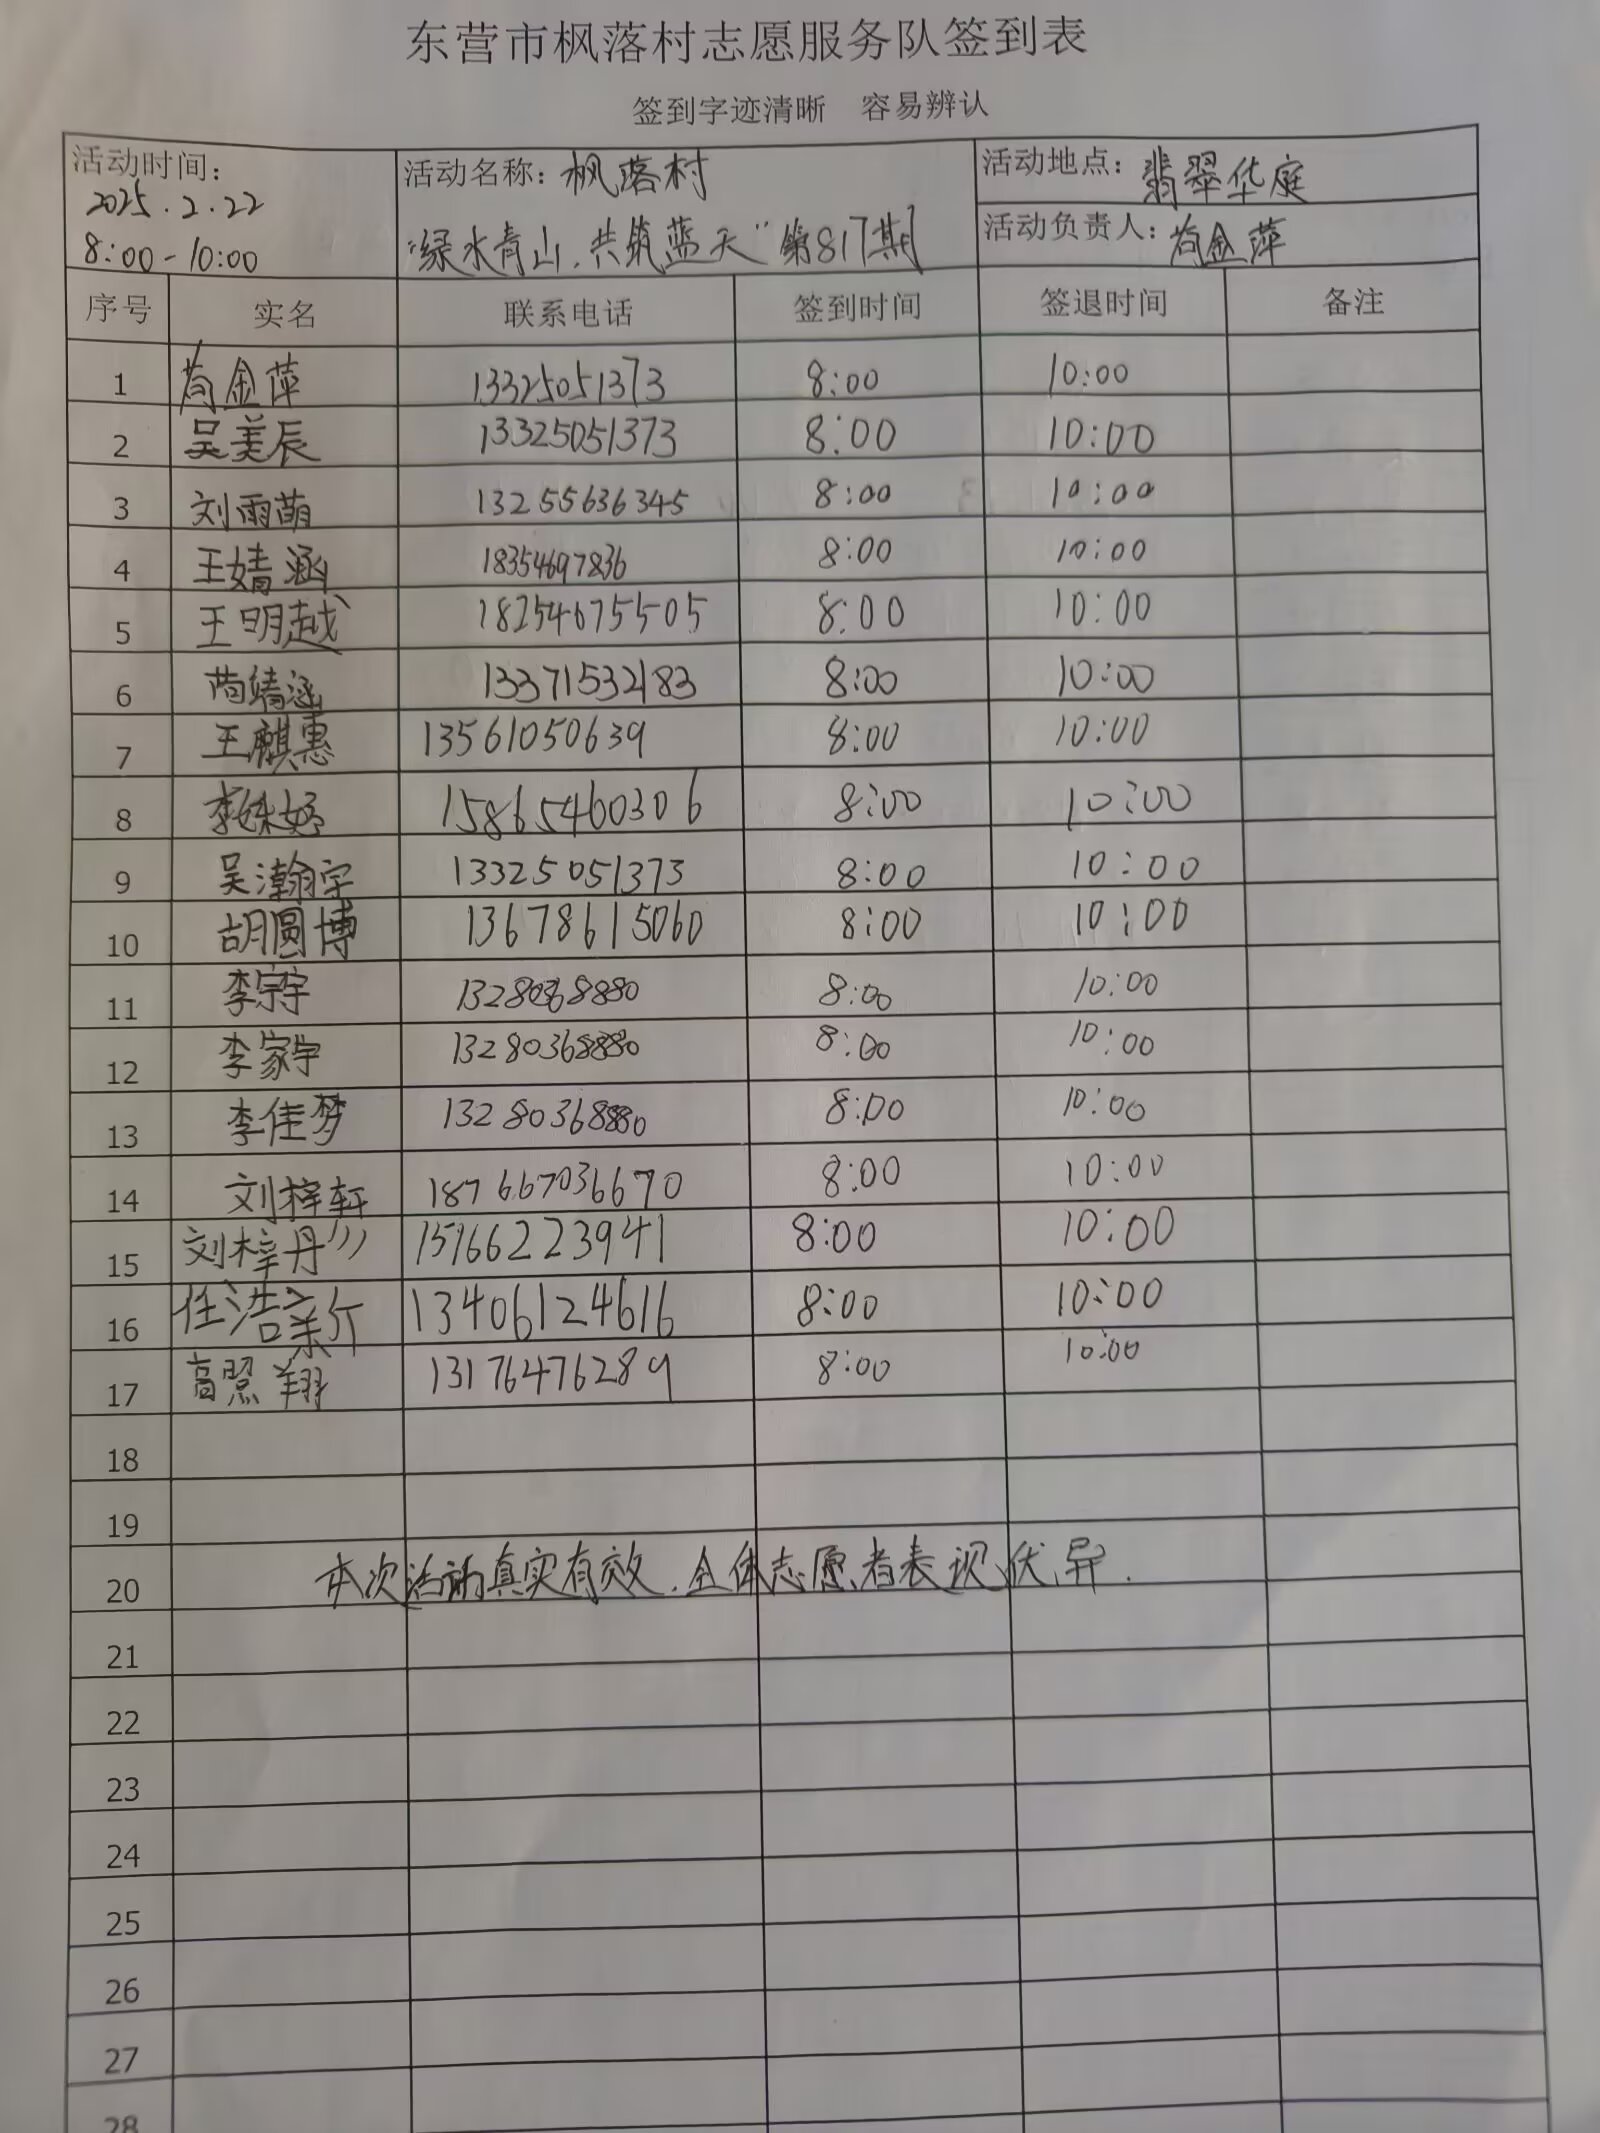 东营市枫落村志愿服务队签到表
签到字迹清晰 容易辨认
活动时间: 2025.2.22 8:00-10:00
活动名称: 枫落村 "绿水青山,共筑蓝天"第817期
活动地点: 翡翠华庭
活动负责人: 苟金萍
序号 实名 联系电话 签到时间 签退时间 备注
1 苟金萍 13325051373 8:00 10:00
2 吴美辰 13325051373 8:00 10:00
3 刘雨萌 13255636345 8:00 10:00
4 王婧涵 18354697836 8:00 10:00
5 王明越 18254675505 8:00 10:00
6 苟靖涵 13371532183 8:00 10:00
7 王麒惠 13561050639 8:00 10:00
8 李姝妤 15865460306 8:00 10:00
9 吴瀚宇 13325051373 8:00 10:00
10 胡圆博 13678615060 8:00 10:00
11 李宗宇 13280368880 8:00 10:00
12 李家宇 13280368880 8:00 10:00
13 李佳梦 13280368880 8:00 10:00
14 刘梓轩 187667036670 8:00 10:00
15 刘梓丹 15166223941 8:00 10:00
16 任浩 13406124616 8:00 10:00
17 高照翔 13176476289 8:00 10:00
18
19
20 本次活动真实有效,全体志愿者表现优异.
21
22
23
24
25
26
27
28